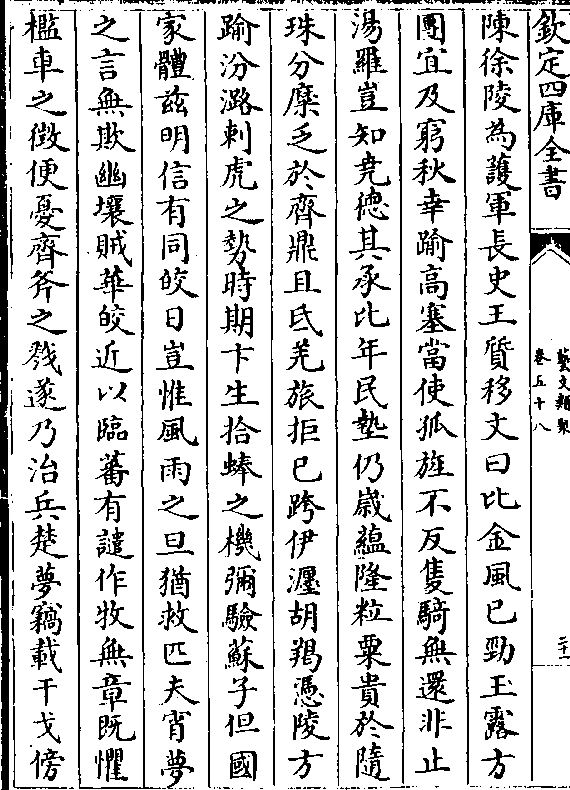 欽定四庫全書
藝文類聚
卷五十八
二十一
陳徐陵為護軍長史王質移文曰比金風已勁玉露方
團宜及窮秋幸踰高塞當使孤旌不反隻騎無還非止
湯羅豈知堯德其承比年民墊仍嵗蘊隆粒粟貴於隨
珠分糜乏於齊鼎且氐羌旅拒已跨伊瀍胡羯憑陵方
踰汾潞刺虎之勢時期卞生拾蜯之機彌驗蘇子但國
家體兹明信有同皎日豈惟風雨之旦猶救匹夫宵夢
之言無欺幽壤賊華皎近以臨蕃有譴作牧無章既懼
檻車之徴便憂齊斧之戮遂乃治兵楚夢竊載干戈傍